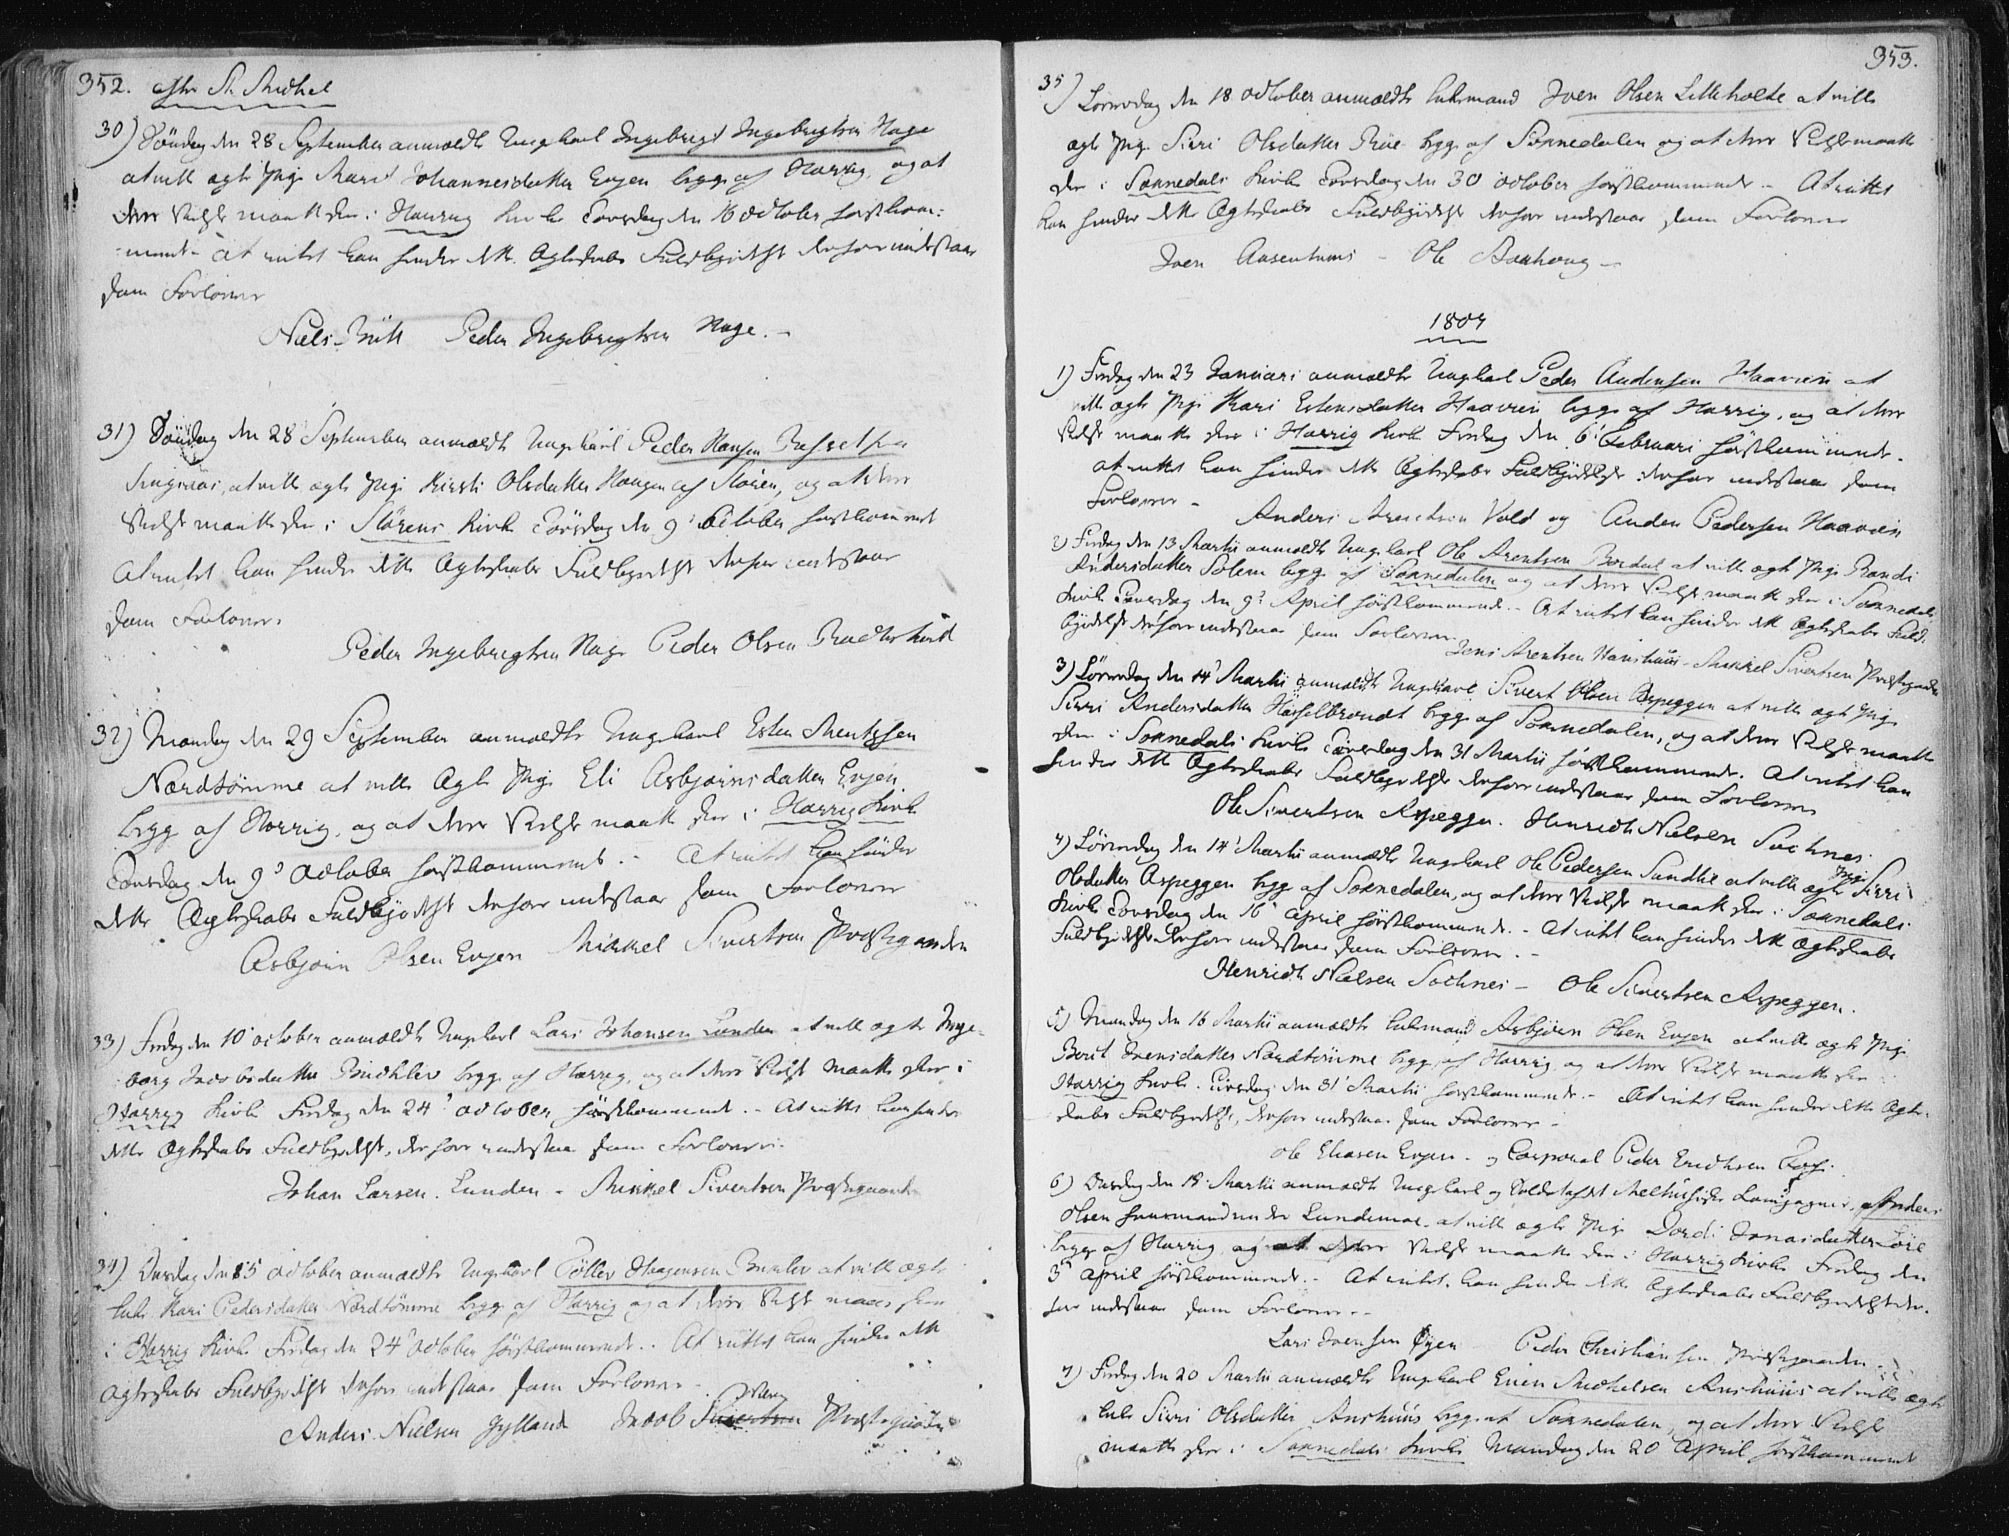 352. efter St. Michel
30) Söndag den 28 September anmældte Ungkarl Ingebrigt Ingebrigtsen Hage
at ville ægte Pige Marit Johannesdatter Engen begge af Horrig, og at
deres Vielse maatte skee i Horrig Kirke Torsdag den 16 October förstkom-
mende - at intet kan hindre dette Ægteskabs Fuldbyrdelse derfore indestaae
som Forlovere
Niels Peder Ingebrigtsen Hage. -
31) Söndag den 28 September anmældte Ungkarl Peder Hansen
at ville ægte Pige Kirsti Olsdatter Haugen af Stören, og at deres
Vielse maatte skee i Störens Kirke Torsdag den 9' October förstkommende
At intet kan hindre dette Ægteskabs Fuldbyrdelse derfore indestaae
som Forlovere.
Peder Ingebrigtsen Hage Peder Olsen
32) Mandag den 29 September anmældte Ungkarl Esten Mentzsen
Nordtömme at ville Ægte Pige Eli Asbjörnsdatter Engen
begge af Horrig, og at deres Vielse maatte skee i Horrig Kirke
Torsdag den 9' October förstkommende. - At intet kan hindre
dette Ægteskabs Fuldbyrdelse derfore indestaae som Forlovere
Asbjörn Olsen Engen Mikkel Sivertsen Præstegaarden
33) Fredag den 10 October anmældte Ungkarl Lars Johansen Lunden at ville ægte Inge-
borg Jacobsdatter begge af Horrig, og at deres Vielse maatte skee i
Horrig Kirke Fredag den 24' October förstkommende. - At intet kan hindre
dette Ægteskabs Fuldbyrdelse, derfore indestaae som Forlovere.
Johan Larsen Lunden - Mikkel Sivertsen Præstegaarden
34) Onsdag den 15 October anmældte Ungkarl Töllev Haagensen at ville ægte
Enke Kari Pedersdatter Nordtömme begge af Horrig og at deres Vielse maae skee
i Horrig Kirke Fredag den 24' October förstkommende. - At intet kan hindre dette
Ægteskabs Fuldbyrdelse derfore indestaae som Forlovere
Anders Nielsen Gylland Jacob Præstegaarden
353.
35) Löverdag den 18 October anmældte Enkemand Joen Olsen Lilleholte at ville
ægte Pige Sirri Olsdatter begge af Soknedalen og at deres Vielse maatte
skee i Soknedals Kirke Torsdag den 30 October förstkommende - At intet
kan hindre dette Ægteskabs Fuldbyrdelse derfore indestaae som Forlovere
Joen - Ole -
1807
1) Fredag den 23 Januari anmældte Ungkarl Peder Andersen Haaven at
ville ægte Pige Kari Estensdatter Haaven begge af Horrig, og at deres
Vielse maatte skee i Horrig Kirke Fredag den 6' Februari förstkommende.
At intet kan hindre dette Ægteskabs Fuldbyrdelse derfore indestaae som
Forlovere - Anders Arentsen Vold og Anders Pedersen Haaven
2) Fredag den 13 Martii anmældte Ungkarl Ole Arentsen Bordal at ville ægte Pige Randi
Andersdatter Solem begge af Soknedalen og at deres Vielse maatte skee i Soknedals
Kirke Torsdag den 9' April förstkommende. - At intet kan hindre dette Ægteskabs Fuld-
byrdelse derfore indestaae som Forlovere.
Jens Arentsen - Mikkel Sivertsen Præstegaarden
3) Löverdag den 14' Martii anmældte Ungkarl Sivert Olsen Aspeggen at ville ægte Pige
Sirri Andersdatter Hasselbrendt begge af Soknedalen, og at deres Vielse maatte
skee i Soknedals Kirke Tirsdag den 31 Martii förstkommende. At intet kan
hindre dette Ægteskabs Fuldbyrdelse derfore indestaae som Forlovere
Ole Sivertsen Aspeggen. Henrich Nielsen Soknes
4) Löverdag den 14' Martii anmældte Ungkarl Ole Pedersen Sundlie at ville ægte Pige Sirri
Olsdatter Aspeggen begge af Soknedalen, og at deres Vielse maatte skee i Soknedals
Kirke Torsdag den 16' April förstkommende. - At intet kan hindre dette Ægteskabs
Fuldbyrdelse derfore indestaae som Forlovere. -
Henrich Nielsen Soknes - Ole Sivertsen Aspeggen.
5) Mandag den 16 Martii anmældte Enkemand Asbjörn Olsen Engen at ville ægte Pige
Berit Joensdatter Nordtömme begge af Horrig og at deres Vielse maatte skee i
Horrig Kirke Tirsdag den 31' Martii förstkommende. - At intet kan hindre dette Ægte-
skabs Fuldbyrdelse, derfore indestaae som Forlovere -
Ole Eliasen Engen - og Corporal Peder Erichsen
6) Onsdag den 18. Martii anmældte Ungkarl og Soldat af det Meelhusiske Compagnie, Anders
Olsen Huusmand under Lundemoe at ville ægte Pige Dordi Jonasdatter
begge af Horrig, og at deres Vielse maatte skee i Horrig Kirke Fredag den
3' April förstkommende. - At intet kan hindre dette Ægteskabs Fuldbyrdelse der-
fore indestaae som Forlovere. -
Lars Joensen Öyen Peder Christiansen Præstegaarden -
7) Fredag den 20 Martii anmældte Ungkarl Even Michelsen Anshuus at ville ægte
Enke Sirri Olsdatter Anshuus begge af Soknedalen, og at deres Vielse
maatte skee i Soknedals Kirke Mandag den 20 April förstkommende